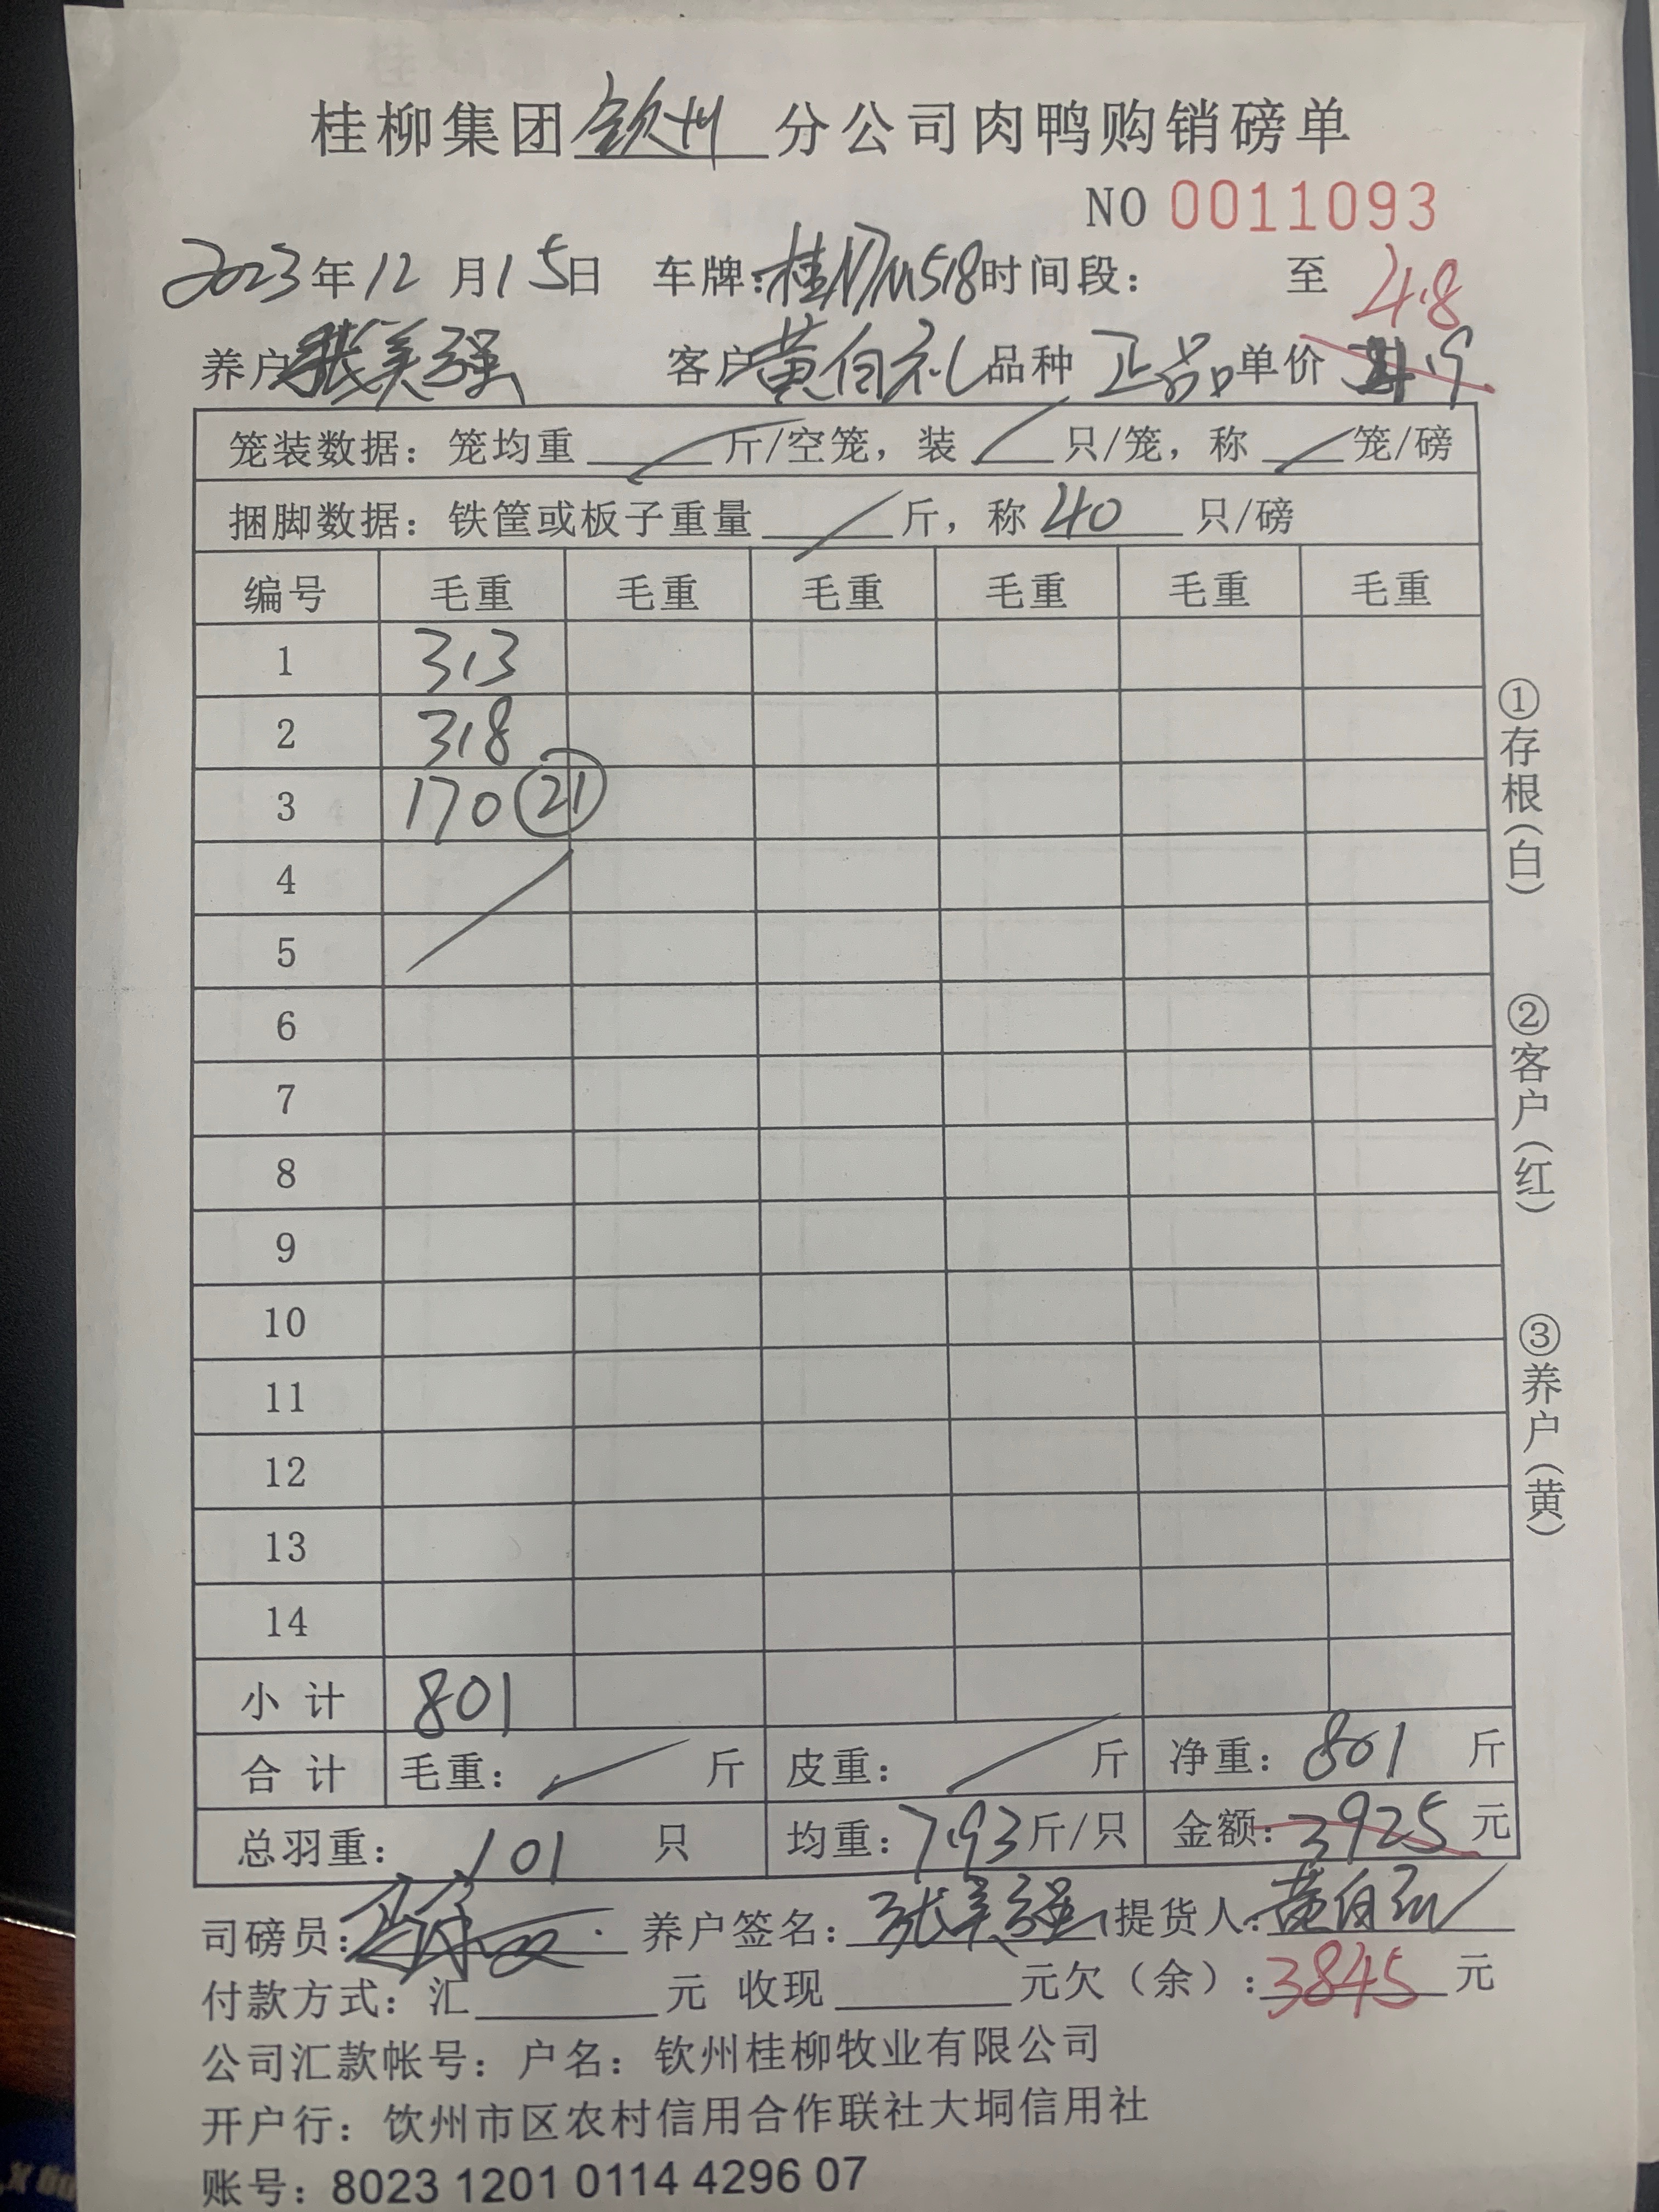 桂柳集团钦州分公司肉鸭购销磅单
NO 0011093
2023年12月15日 车牌:桂 518时间段: 至 4.8
养户张美强 客户黄自礼 品种 正品 单价 4.9
笼装数据:笼均重 / 斤/空笼,装 / 只/笼,称 / 笼/磅
捆脚数据:铁筐或板子重量 / 斤,称 40 只/磅
编号 毛重 毛重 毛重 毛重 毛重 毛重
1 313
2 318
3 170 ㉑
4
5
6
7
8
9
10
11
12
13
14
小计 801
合计 毛重: / 斤 皮重: / 斤 净重: 801 斤
总羽重: 101 只 均重:7.93斤/只 金额:3925元
司磅员: 养户签名:张美强 提货人:黄自礼
付款方式:汇 元 收现 元欠(余):3845元
公司汇款帐号:户名:钦州桂柳牧业有限公司
开户行:钦州市区农村信用合作联社大垌信用社
账号:8023 1201 0114 4296 07
①存根(白)
②客户(红)
③养户(黄)